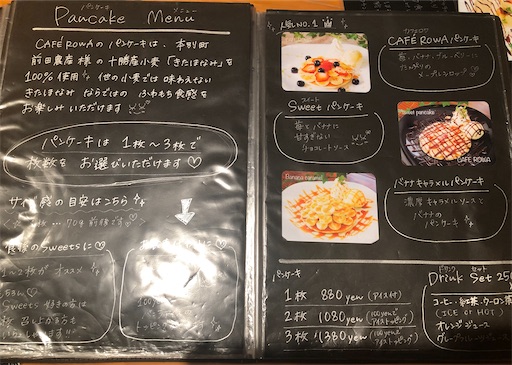 パンケーキ メニュー
Pancake Menu
CAFÉ ROWAの パンケーキは、本別町
前田農産様の 十勝産小麦「きたほなみ」を
100%使用 他の小麦では味わえない
きたほなみ ならではの ふわもち食感を
お楽しみいただけます
パンケーキは 1枚〜3枚で
枚数を お選びいただけます♡
サイズ感の目安はこちら
70g前後です♡
食後のSweetsに♡
1〜2枚が オススメ
Sweets 好きの方は
人気 NO.1
カフェロワ
CAFÉ ROWA パンケーキ
苺、バナナ、ブルーベリーに
たっぷりの
メープルシロップ
スイート
Sweet パンケーキ
苺とバナナに
甘すぎない
チョコレートソース
Sweet pancake
CAFÉ ROWA
Banana caramel
バナナキャラメルパンケーキ
濃厚 キャラメルソースと
バナナの
パンケーキ
パンケーキ
1枚 880yen (アイス付)
2枚 1080yen (100yenでアイストッピング)
3枚 1380yen (100yenでアイストッピング)
ドリンク セット
Drink Set 250
コーヒー・紅茶・ウーロン茶
(ICE or HOT)
オレンジジュース